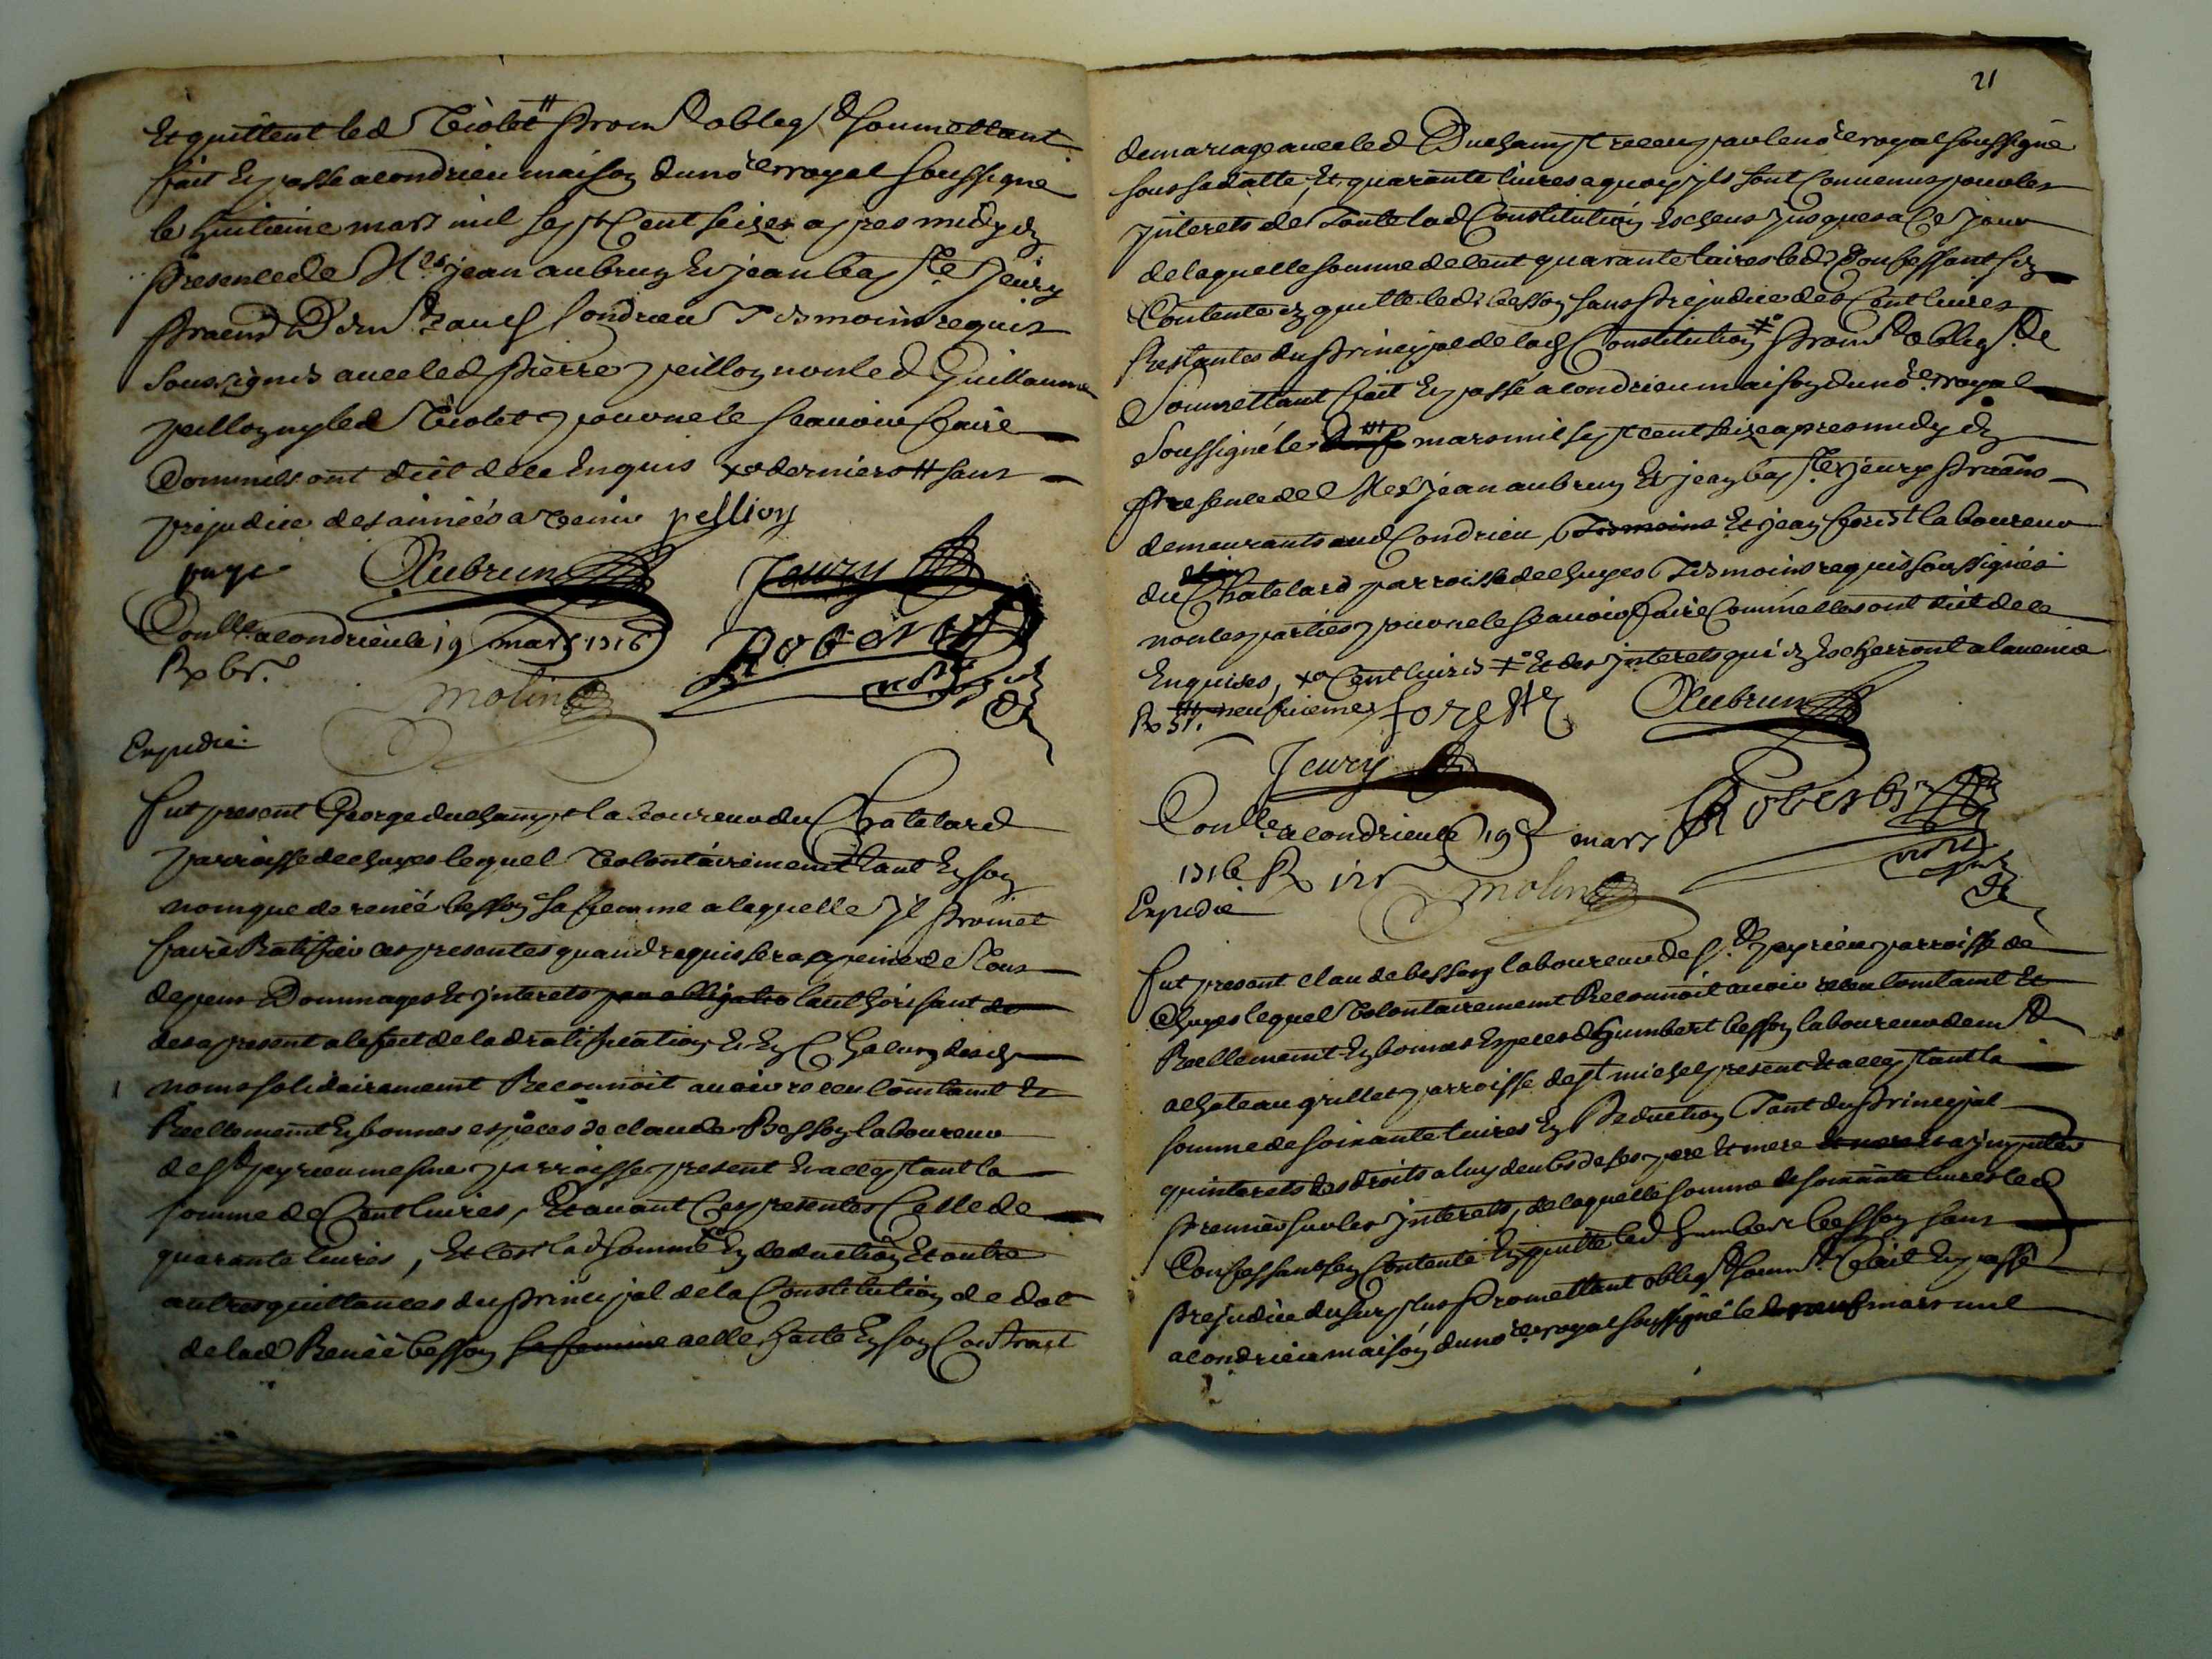 Et quittent led Violet # prom& obleg& soumettant
fait et passé a condrieu maison du no.re royal soussigne
le huitieme mars mil sept Cent seize apres midy en
presence de Mes jean aubrun et jean bapte Jeury
pratns aud Condrieu Tesmoins requis
soussignés avec led pierre peillon non led Guillaume
peillon ny led Violet pour ne le scavoir faire
Comm'ils ont dict de ce Enquis xo derniers # sans
prejudice des années a venir pellion
Aubrun Jeury
Conlle a condrieu le 19 mars 1716
Robert
molin nore royal
Expedié
fut present George duchampt laboureur du Chatelard
parroisse dechuyes lequel volontairement tant En son
nom que de reneé besson sa femme a laquelle Jl promet
faire Ratiffier ces presentes quand requis sera a peine de tous
depens Dommages Et jnterets lauthorisant
des a present a leffect de lad ratification Et En Chacun desd
noms solidairement Reconnoit avoir receu Comtamt Et
Reellement En bonnes espèces de claude Besson laboureur
de St peyrieu mesme parroisse present Et acceptant la
somme de Cent livres, Et avant Ces presentes Celle de
quarante livres, Et C'est lad somme En deduction Et outre
autres quittances du principal de la Constitution de dot
de lad Reneé besson sa femme a elle faite En son Contract
21
de mariage avec led Duchampt receu par le no.re royal soussigné
sous sa datte, Et quarante livres a quoy jls sont Convenus pour les
jnterets de Toute lad Constitution Escheus jusques a Ce jour
de laquelle somme de Cent quarante livres led Confessant s'en
Contente et quitte led besson sans prejudice des Cent livres
Restantes du principal de lad Constitution prom& obleg& &
Soumettant fait Et passé a condrieu maison du no.re royal
Soussigné le mars mil sept cent seize apres midy en
presence de Mes jean aubrun Et jean bapte jeury pratns
demeurants aud Condrieu Tesmoins Et jean forest laboureur
du Chatelard parroisse dechuyes Tesmoins requis soussignés
non les parties pour ne le scavoir faire Comm'elles ont dict de ce
Enquises, xo Cent livres Et des jnterets qui en Escherront a lavenir
neufvieme foreste Aubrun
Jeury
Conlle a condrieu le 19 mars Robert
1716 molin nore royal
Expedié
fut present claude besson laboureur de St peyrieu parroisse de
Chuyes lequel volontairement Reconnoit avoir receu Comtamt Et
Reellement En bonnes Especes de humbert besson laboureur demt
a chateau grillet parroisse de St michel present Et acceptant la
somme de soixante livres En Deduction Tant du principal
qu'interets des droits a luy deubs de ses pere Et mere a jmputer
premier sur les jnterets, de laquelle somme de soixante livres led
Confessant s'en Contente Et quitte led humbert besson sans
prejudice du surplus promettant obleg& soum& fait Et passé
a condrieu maison du no.re royal soussigné le neuf mars mil